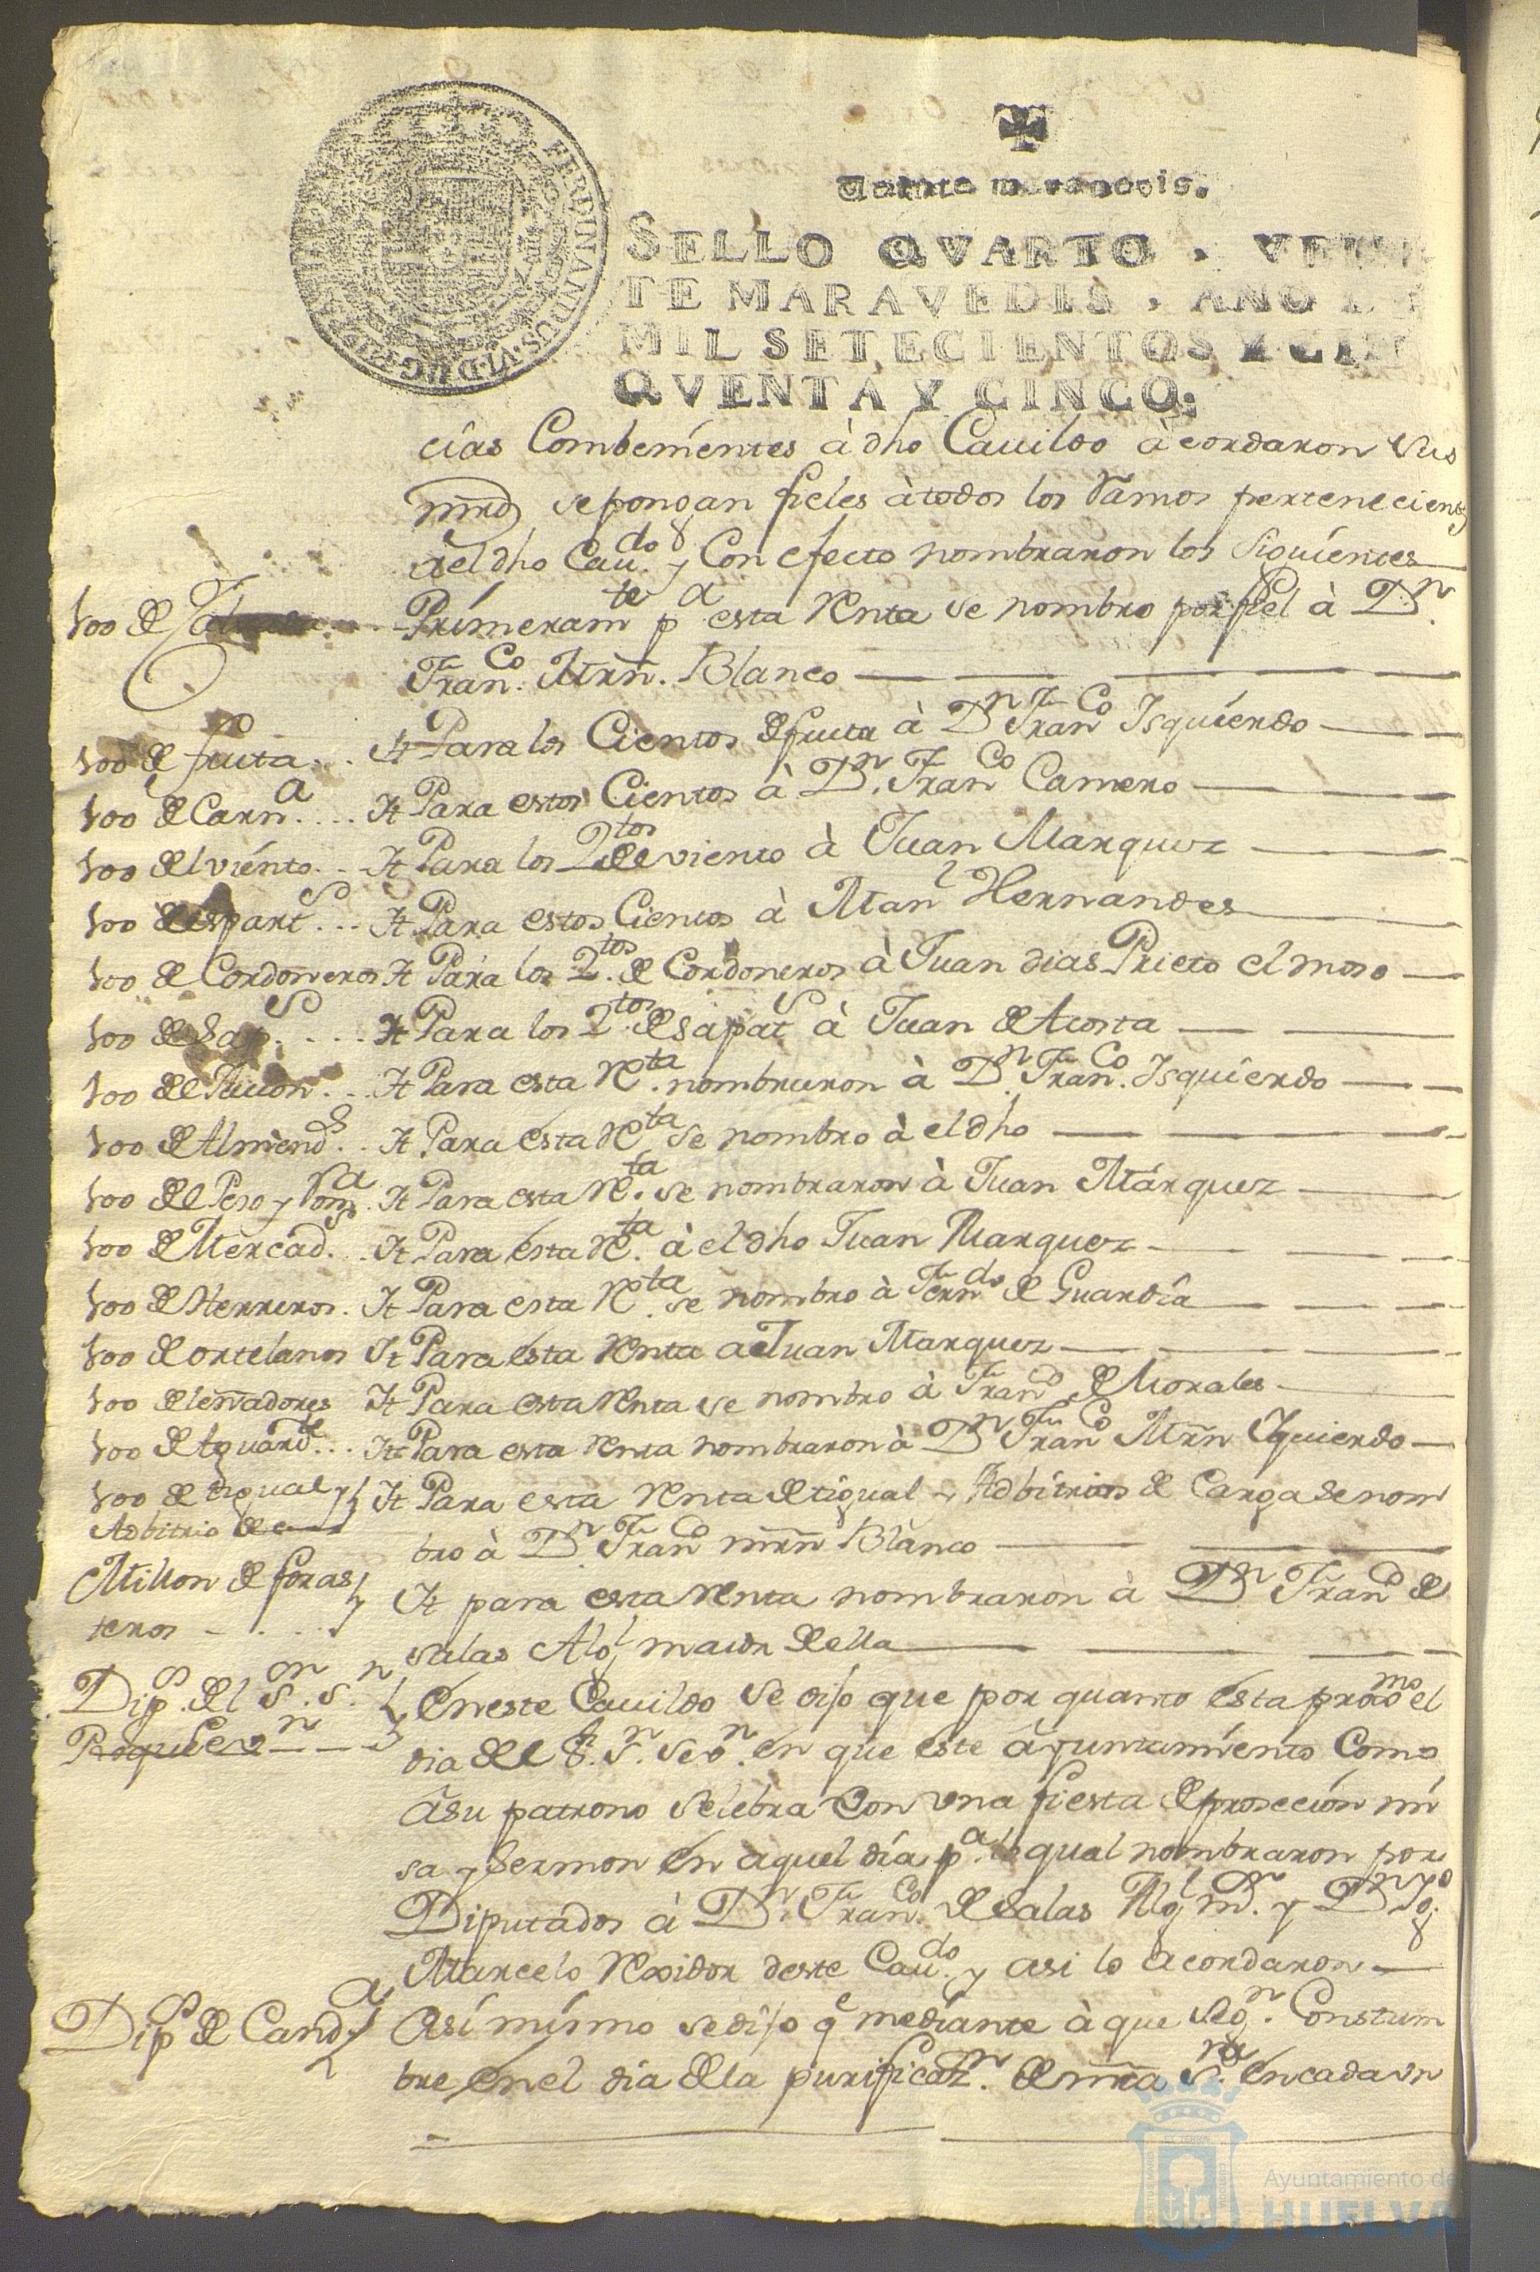 Veinte maravedis.
SELLO QVARTO, VEIN
TE MARAVEDIS, AÑO DE
MIL SETECIENTOS Y CIN
QVENTA Y CINCO;
FERDINANDUS. VI. D. G.
cias Combenientes à dho Cauildo àcordaron sus
mrds se pongan fieles à todos los Ramos pertenecientes
à el dho Caudo. y Con efecto nombraron los siguientes
Primeramte pa esta Renta se nombro por fiel à Dn.
Franco. Mrn. Blanco
100 de fruta... It Para los Cientos de fruta à Dn Franco Isquierdo
100 de Carna.... It Para estos Cientos à Dn. Franco Camero
100 del viento.. It Para los 2tos de viento à Juan Marquez
100 de espart... It Para estos Cientos à Manl Hernandes
100 de Cordoneros It Para los 2tos. de Cordoneros à Juan dias Prieto el moso
100 de Sap..... It Para los 2tos. de sapat à Juan de Acosta
100 de Jauon... It Para esta Rta. nombraron à Dn. Franco. Isquierdo
100 de Almends.. It Para esta Rta se nombro à el dho
100 de Peso y Roma. It Para esta Rta. se nombraron à Juan Márquez
100 de Mercads... It Para esta Rta. à el dho Juan Marquez
100 de Herreros. It Para esta Rta. se nombro à Ferndo de Guardia
100 de ortelanos It Para esta Renta a Juan Marquez
100 de leñadores It Para esta Renta se nombro à Franco de Morales
100 de Aguarde... It Para esta Renta nombraron à Dn Franco Mrn Yquierdo
100 de tigual y It Para esta Renta de tigual y Adbitrios de Carga se nom
Adbitrio de
bro à Dn. Franco mrn Blanco
Millon de foras
teros It para esta Renta nombraron à Dn Franco de
salas Algl maior de ella
Dipos. del Sr. Sn. En este Cauildo se dijo que por quanto esta proxmo el
dia de el Sr. Sn. Seon. en que este ayuntamiento Como
à su patrono selebra con vna fiesta de prosecion mi
sa y Sermon en aquel dia pa. lo qual nombraron por
Diputados à Dn. Franco. de Salas Algl mr. y Dn
Marcelo Rexidor deste Caudo. y asi lo acordaron
Dips de Canda Asi mismo se dijo qe mediante à que segn. Constum
bre en el dia de la purificazn. de nra Sra. en cada vn
Ayuntamiento de
HUELVA